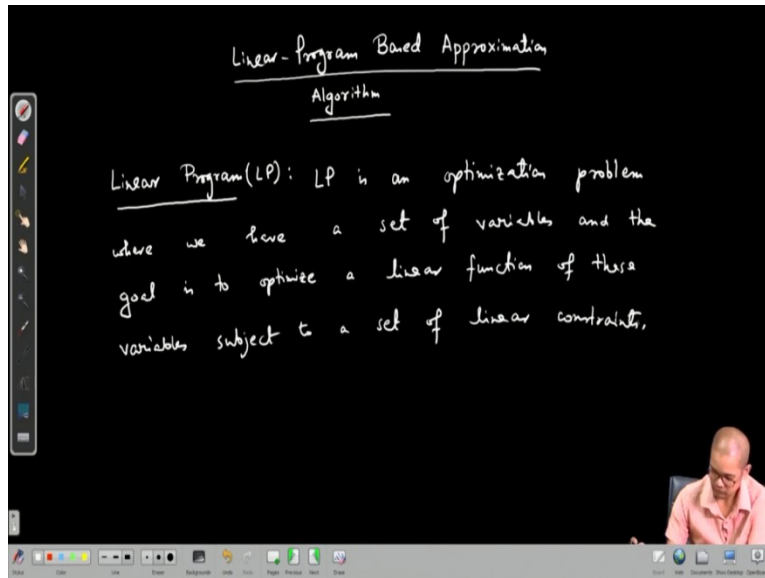 Linear-Program Based Approximation
Algorithm
Linear Program (LP): LP is an optimization problem
where we have a set of variables and the
goal is to optimize a linear function of these
variables subject to a set of linear constraints.